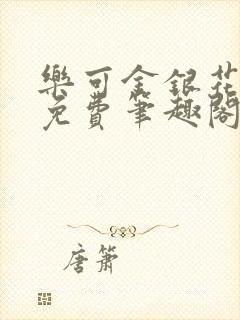 樂可金銀花
免費筆趣閣
唐簫